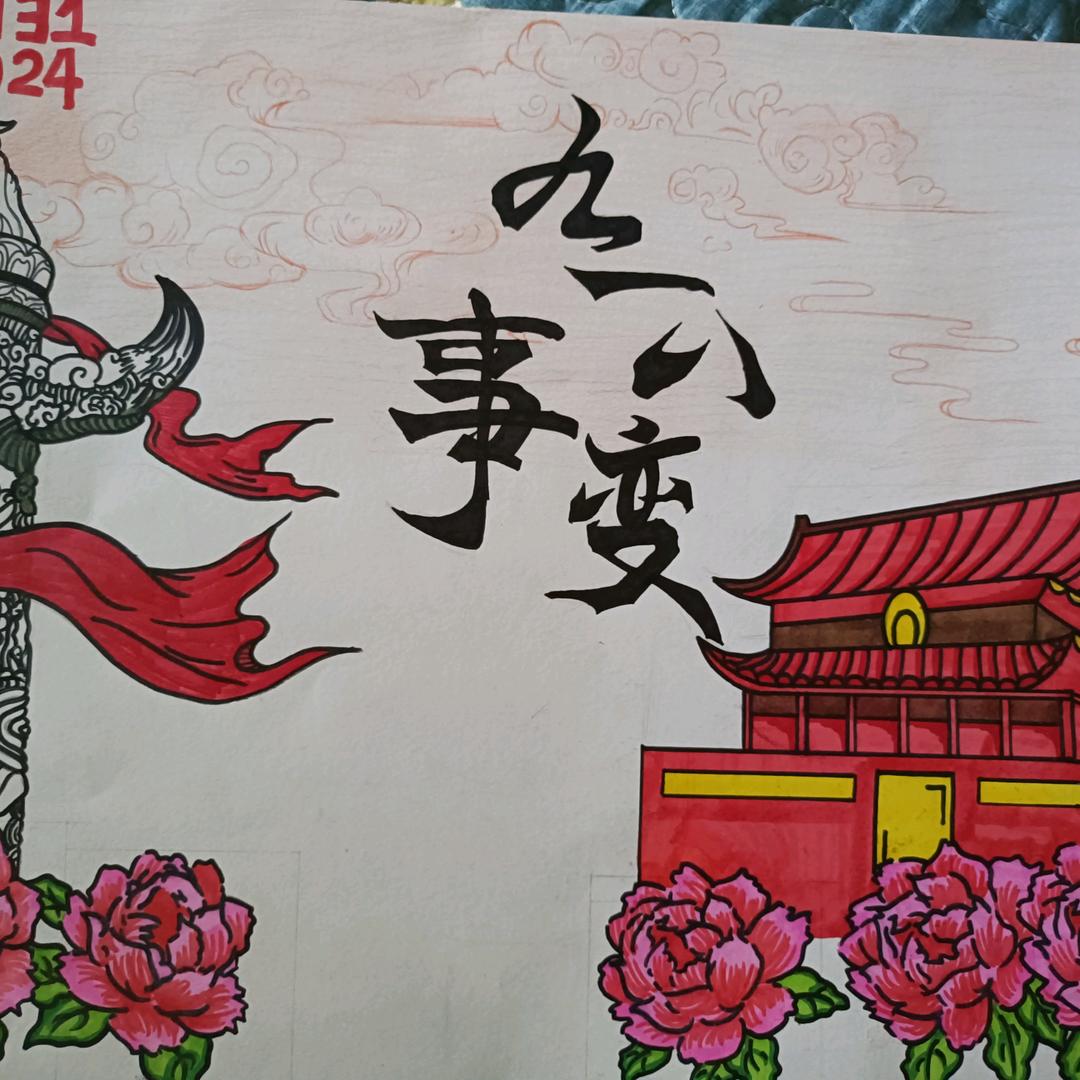 31
24
九一八
事变